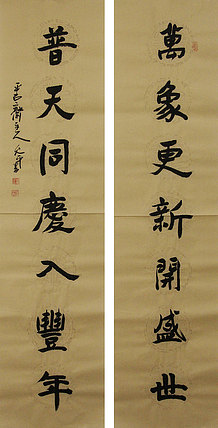 萬象更新開盛世
普天同慶入豐年